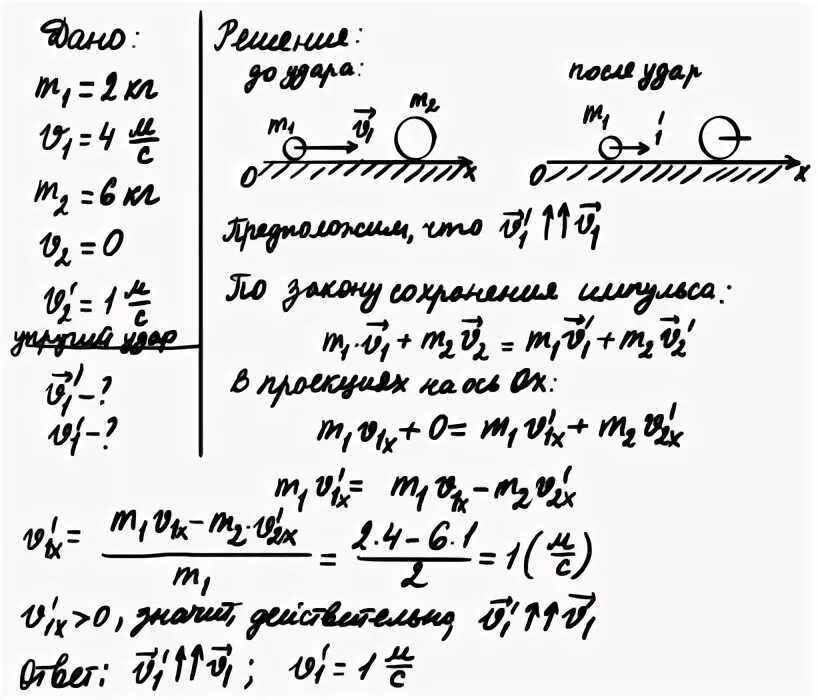 Дано:
m₁ = 2 кг
v₁ = 4 м/с
m₂ = 6 кг
v₂ = 0
v₂′ = 1 м/с
упругий удар
v⃗₁′ - ?
v₁′ - ?
Решение:
до удара:
m₁ v⃗₁ m₂
O x
после удар
m₁ ′₁
O x
Предположим, что v⃗₁′ ↑↑ v⃗₁
По закону сохранения импульса:
m₁·v⃗₁ + m₂v⃗₂ = m₁v⃗₁′ + m₂v⃗₂′
В проекциях на ось Ox:
m₁v₁ₓ + 0 = m₁v₁ₓ′ + m₂v₂ₓ′
m₁v₁ₓ′ = m₁v₁ₓ - m₂v₂ₓ′
v₁ₓ′ = (m₁v₁ₓ - m₂·v₂ₓ′)/m₁ = (2·4 - 6·1)/2 = 1 (м/с)
v₁ₓ′ > 0, значит, действительно, v⃗₁′ ↑↑ v⃗₁
Ответ: v⃗₁′ ↑↑ v⃗₁; v₁′ = 1 м/с